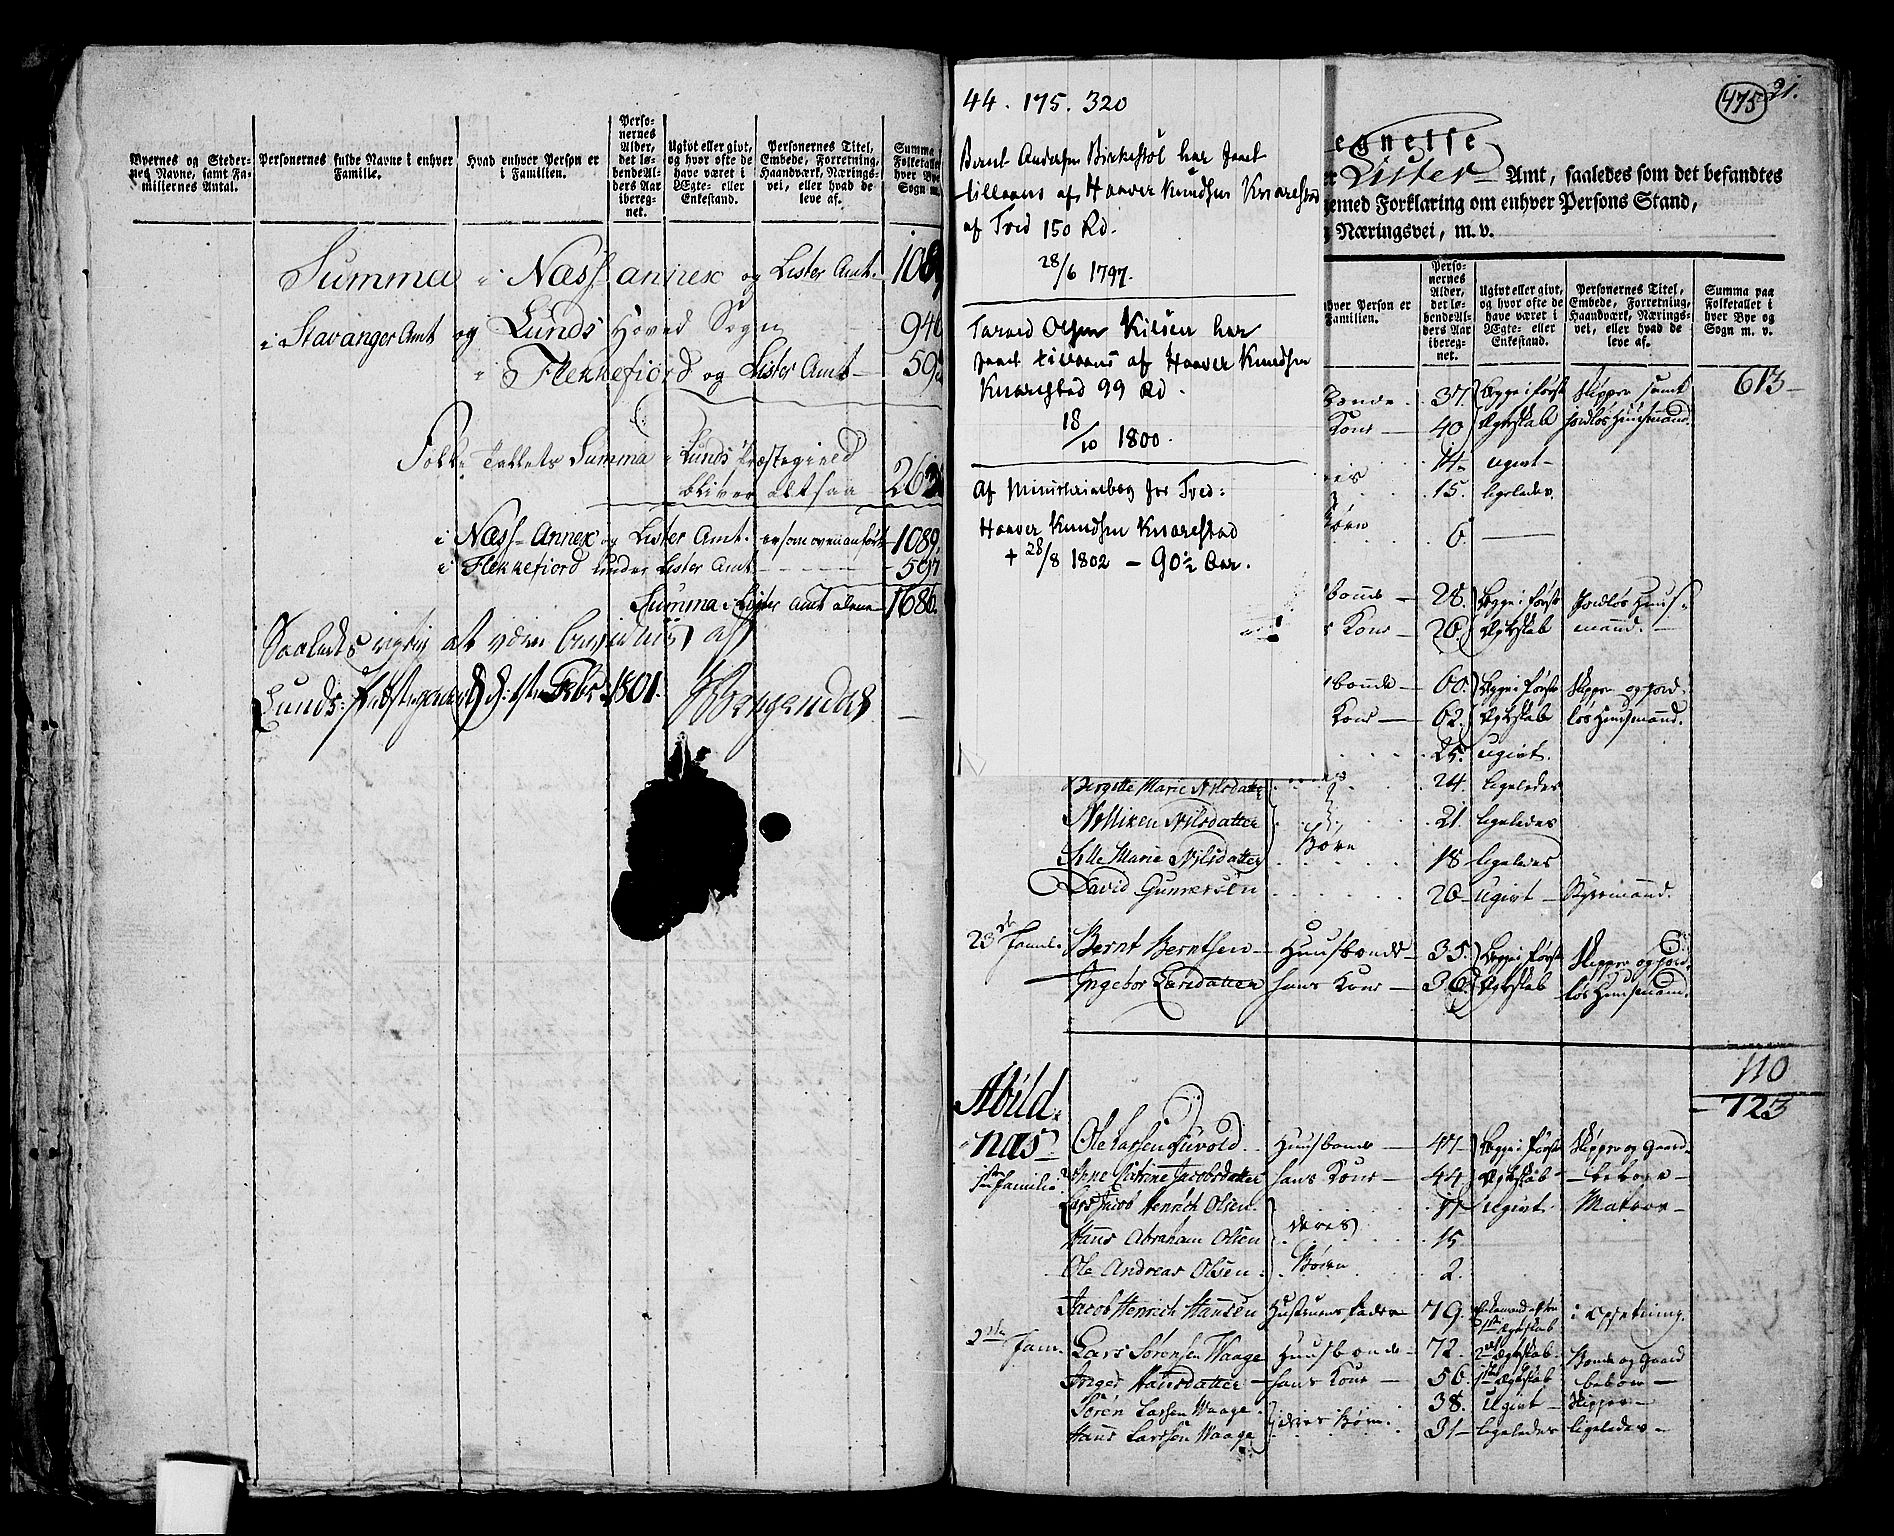 Byernes og Steder-
nes Navne, samt Fa-
miliernes Antal.
Personernes fulde Navne i enhver
Familie.
Hvad enhver Person er
i Familien.
Perso-
nernes
Alder,
det lø-
bende Al-
ders Aar
iberegn-
net.
Ugivt eller givt,
og hvor ofte de
have været i
Ægte- eller
Enkestand.
Personernes Titel,
Embede, Forretning,
Haandværk, Nærings-
vei, eller hvad de
leve af.
Summa
Folketallet
hver Bye
Sogn m.
Summa i Næss annex og Lister Amt. 1089
i Stavanger Amt og Lunds Hoved Sogn 946
i Flekkefiord og Lister Amt 597
Folke Tallets Summa i Lunds Præstegield
bliver altsaa 2632
i Næss Annex og Lister Amt. er som oven anført 1089.
i Flekkefiord under Lister Amt 597
Summa i Lister Amt alene 1686.
Saaledes rigtig at være bevidnes af
Lunds Præstegaard d: 1ste Febr: 1801.
44. 175. 320
Bernt Andersen Birkestøl har faaet
tillaans af Haaver Knudsen Knarestad
af Tved 150 Rd.
28/6 1797.
Tarald Olsen Kilsen har
faaet tillaans af Haaver Knudsen
Knarestad 99 Rd.
18/10 1800.
Af Ministerialbog for Tved:
Haaver Knudsen Knarestad
+ 28/8 1802 — 90½ Aar.
475
21.
egnelse
er Lister Amt, saaledes som det befandtes
gemed Forklaring om enhver Persons Stand,
g Næringsvei, m. v.
hver Person er
Familien.
Perso-
nernes
Alder,
det lø-
bende Al-
ders Aar
iberegn-
net.
Ugivt eller givt,
og hvor ofte de
have været i
Ægte- eller
Enkestand.
Personernes Titel,
Embede, Forretning,
Haandværk, Nærings-
vei, eller hvad de
leve af.
Summa paa
Folketallet i
hver Bye og
Sogn m. v.
613
bonde 37. Begge i første Skipper samt
Kone 40 Ægteskab Jordløs Huusmand.
14 ugivt
15. ligeledes
Børn 6.
bonde 28. Begge i første Jordløs Huus-
Kone 26. Ægteskab mand.
bonde 60. Begge i første Skipper og jord-
Kone 62. Ægteskab løs Huusmand.
25. ugivt.
Birgitte Marie Nilsdatter 24. ligeledes
Nilliken Nilsdatter 21. ligeledes
Sille Marie Nilsdatter Børn 18 ligeledes
David Gunnersen 20 ugivt Styrmand.
23de Famil. Bernt Berntsen Huusbonde 35. Begge i første Skipper og jord-
Ingebor Larsdatter hans Kone 36 Ægteskab løs Huusmand.
110
723
Abild-
nas Ole Larsen Tuvold Huusbonde 47 Begge i første Skipper og Gaard-
1ste Familie Anne Catrine Jacobsdatter hans Kone 44 Ægteskab beboer
Lars Jacob Henrich Olsen 17 ugivt Matros
Hans Abraham Olsen deres 15
Ole Andreas Olsen Børn 2.
Jacob Henrich Hansen Hustruens Fader 79. Enkemand efter
1ste Ægteskab i Opfostring.
2den Fam: Lars Sørensen Waage Huusbonde 72. 2det Ægteskab Bonde og Gaard
Inger Hansdatter hans Kone 56 1ste Ægteskab beboer
Søren Larssen Waage 38. ugivt Skipper
Hans Larssen Waage deres Børn 31 ligeledes ligeledes